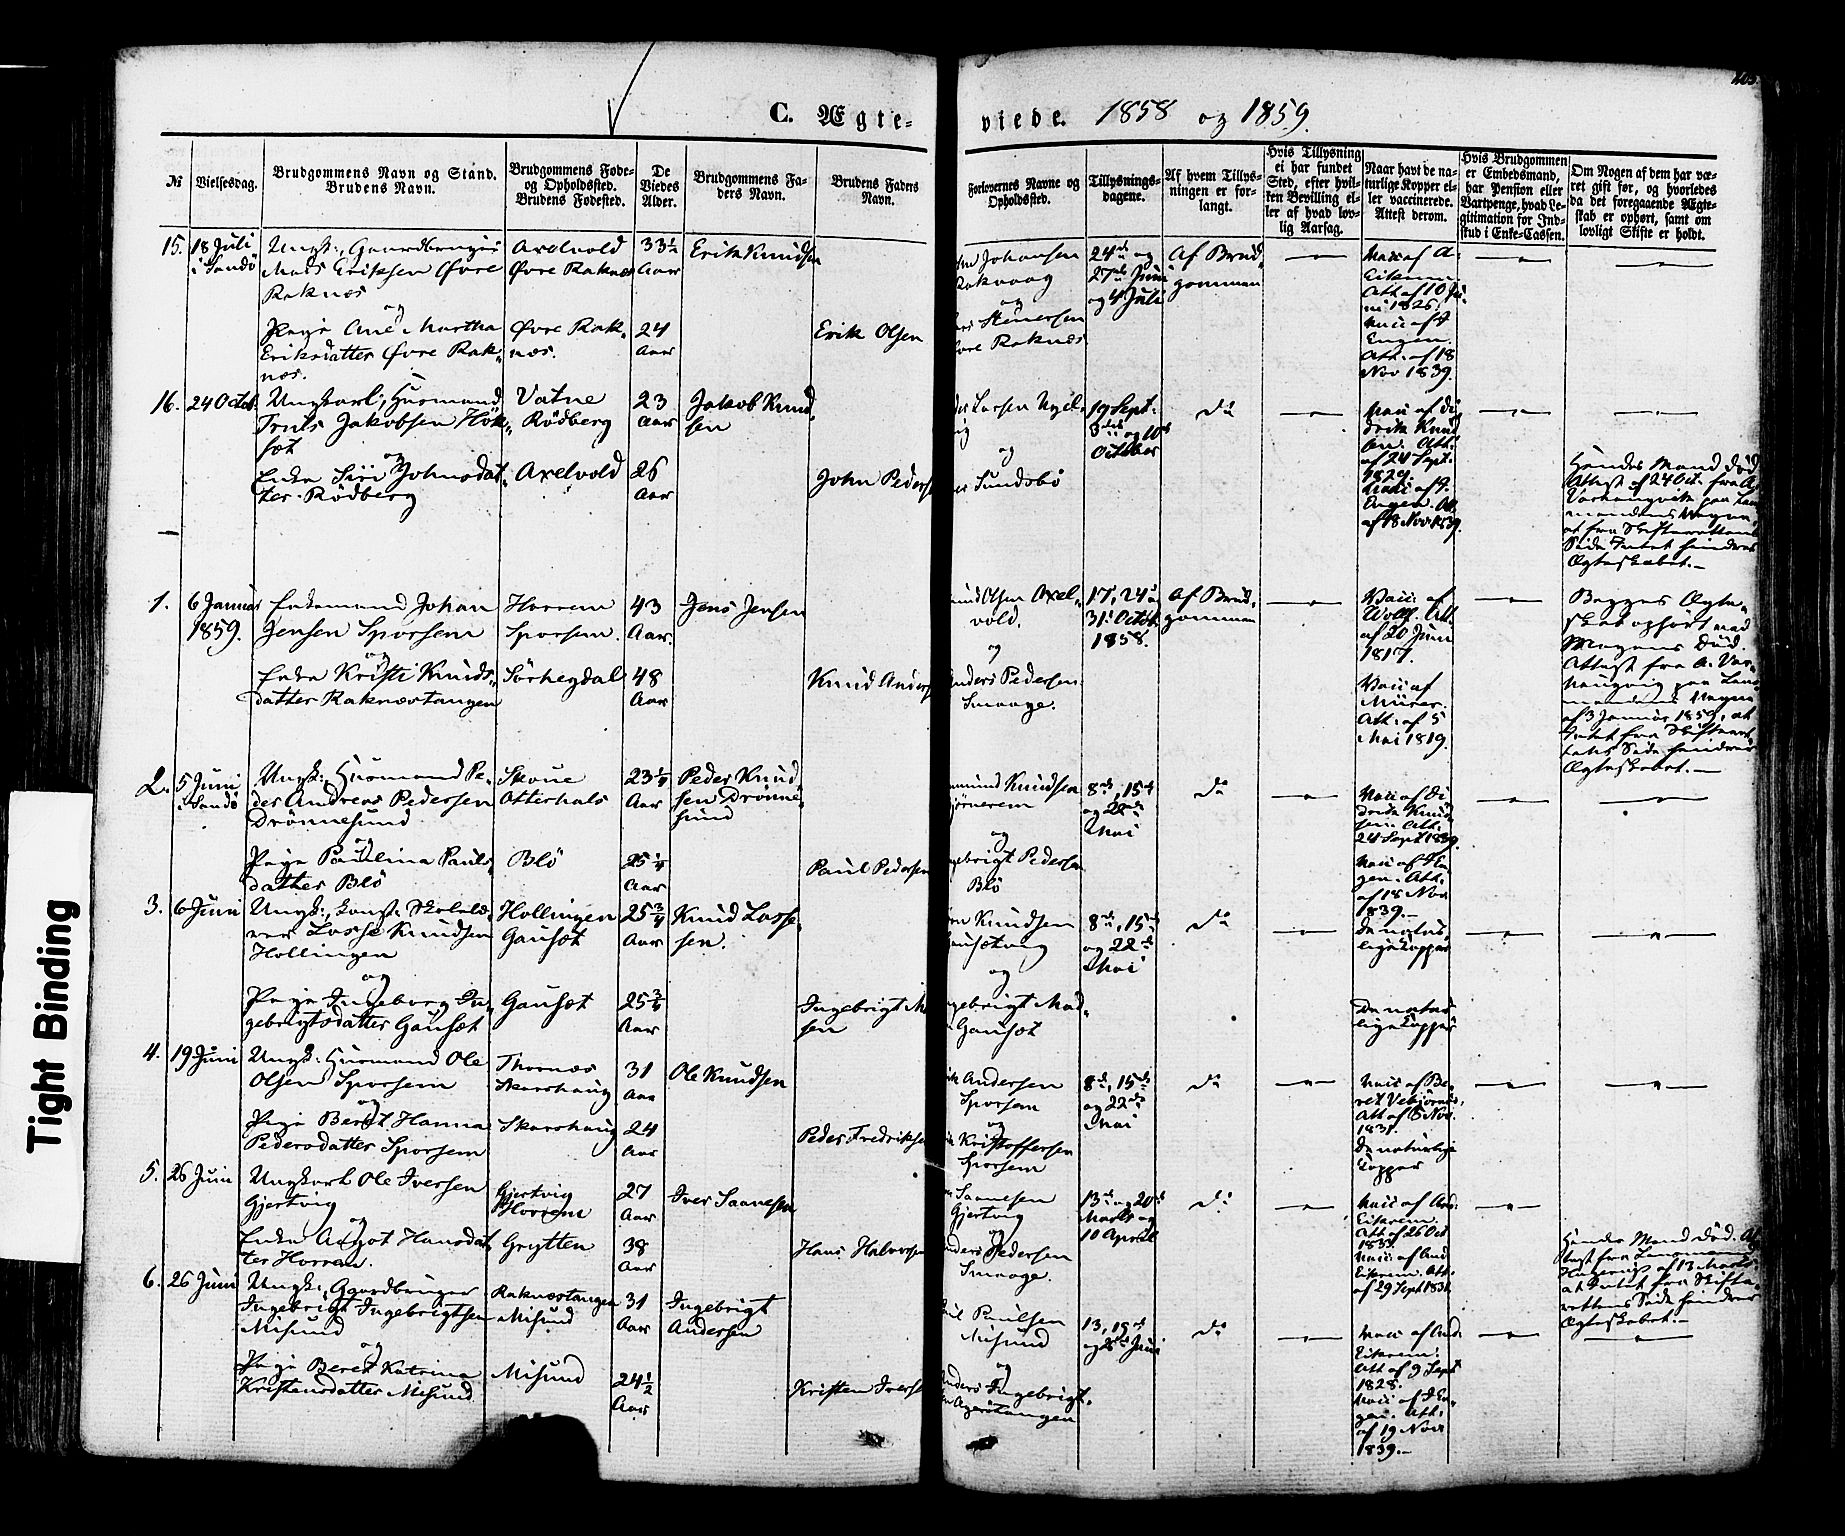 C. Ægte-
viede. 1858 og 1859.
№
Vielsesdag.
Brudgommens Navn og Stand.
Brudens Navn.
Brudgommens Føde-
og Opholdssted.
Brudens Fødested.
De
Viedes
Alder.
Brudgommens Fa-
ders Navn.
Brudens Faders
Navn.
Forlovernes Navne og
Opholdssted.
Tillysnings-
dagene.
Af hvem Tillys-
ningen er for-
langt.
Hvis Tillysning
ei har fundet
Sted, efter hvil-
ken Bevilling el-
ler af hvad lov-
lig Aarsag.
Naar havt de na-
turlige Kopper el-
ler vaccinerede.
Attest derom.
Hvis Brudgommen
er Embedsmand,
har Pension eller
Vartpenge, hvad Le-
gitimation for Ind-
skud i Enke-Cassen.
Om Nogen af dem har væ-
ret gift før, og hvorledes
da det foregaaende Ægte-
skab er ophørt, samt om
lovligt Skifte er holdt.
15.
18 Juli
i Sandö
Ungk: Gaardbruger
Mads Eriksen Øvre
Raknæs
og
Pige Ane Martha
Eriksdatter Øvre Rak-
næs.
Axelvold
Øvre Raknæs
Øvre Rak-
næs.
33½
Aar
24
Aar
Erik Knudsen
Erik Olsen
Johansen
Rakvaag
og
Steuersen
Øvre Raknæs
24de og
27de Juni
og 4 Juli
Af Brud-
gommen
Vacc af A.
Eikrem
Att af 10 Ju-
ni 1826.
Vacc af J
Engen.
Att. af 18
Nov 1839.
16.
24 Octob.
Ungkarl, Husmand
Truls Jakobsen Hök-
sæt
og
Enke Siri Johnsdat-
ter Rödberg
Vatne
Rödberg
Axelvold
23
Aar
26
Aar
Jakob Knud-
sen
John Peders
Larsen
og
Sundsbö
19 Sept.
3die og 10de
October
do
Vacc af Di
drik Knud
sen. Att.
af 24 Sept.
1839.
Vacc af J.
Engen. Att.
af 18 Nov 1839.
Hendes Mand död
Attest af 24 Oct. fra A.
Varhaugvik paa Len
mandens Vegne,
at fra Skifterettens
Side Intet hindrer
Ægteskabet.
1.
6 Januar
1859.
Enkemand Johan
Jensen Sporsem
og
Enke Kristi Knuds-
datter Raknæstangen
Horrem
Sporsem.
Sörhegdal
43
Aar.
48
Aar
Jens Jensen
Knud Anders
Olsen Axel-
vold.
og
Anders Pedersen
Smaage.
17, 24 og
31 Octob.
1858.
Af Brud-
gommen
Vacc af
Wolff. Att.
af 20 Juni
1817.
Vacc af
Müner.
Att. af 5
Mai 1819.
Begges Ægte-
skab ophört ved
Magens Död.
Attest fra A. Var-
haugvig paa Len-
mandens Vegne
af 3 Januar 1859, at
Intet fra Skifteret-
tens Side hindrer
Ægteskabet.
2.
5 Juni
i Sandö
Ungk: Husmand Pe-
der Andreas Pedersen
Drönnesund
og
Pige Paulina Pauls-
datter Blö
Skoue
Otterhals
Blö
23¼
Aar
25¼
Aar
Peder Knud
sen Drönne-
sund
Paul Pedersen
Knudsen
og
Pedersen
Blö
8de, 15de
og 22de
Mai
do
Vacc af Di
drik Knud-
sen. Att.
24 Sept 1839.
Vacc af J En-
gen. Att.
af 18 Nov
1839.
3.
6 Juni
Ungk: konst. Skolelæ-
rer Lasse Knudsen
Hollingen
og
Pige Ingeborg In-
gebrigtsdatter Gausæt
Hollingen
Gausæt
Gausæt
25¾
Aar
25¾
Aar
Knud Lasse-
sen.
Ingebrigt Ma
sen
Knudsen
Gausætvig
og
Ingebrigt Mad-
Gausæt
8de, 15de
og 22de
Mai
do
De natur-
lige Kopper
De natur
lige Kopper
4.
19 Juni
Ungk: Husmand Ole
Olsen Sporsem
og
Pige Beret Hanna
Pedersdatter Sporsem
Thornæs
Skarshaug
Skarshaug
31
Aar
24
Aar
Ole Knudsen
Peder Fredriksen
Andersen
Sporsem
og
Kristoffersen
Sporsem
8de, 15de
og 22de
Mai
do
Vacc af Be-
ret Vebjörnsd.
Att af 5 Nov.
1831.
De naturlige
Kopper
5.
26 Juni
Ungkarl Ole Iversen
Gjertvig
og
Enke Angot Hansdat
ter Horrem.
Gjertvig
Horrem
Grytten
27
Aar
38
Aar
Iver Saanesen
Hans Halvorsen
Saanesen
Gjertvig
og
Anders Pedersen
Smaage.
13de og 20de
Marts og
10 April
do
Vacc af And.
Eikrem.
Att af 26 Oct
1833.
Vacc af And
Eikrem. Att.
af 29 Sept 1831.
Hendes Mand död. At
test fra Lensmand
af 13 Marts
at Intet fra Skifte-
rettens Side hindrer
Ægteskabet.
6.
26 Juni
Ungk: Gaardbruger
Ingebrigt Ingebrigtsen
Misund
og
Pige Beret Katrina
Kristensdatter Misund
Raknæstangen
Misund
Misund
31
Aar
24½
Aar
Ingebrigt
Andersen
Kristen Iverse
Paulsen
Misund
og
Anders Ingebrigt-
13, 19de
og 26de Juni
do
Vacc af And.
Eikrem.
Att af 9 Sept
1828.
Vacc af J En-
gen. Att.
af 19 Nov
1839.
Tight Binding